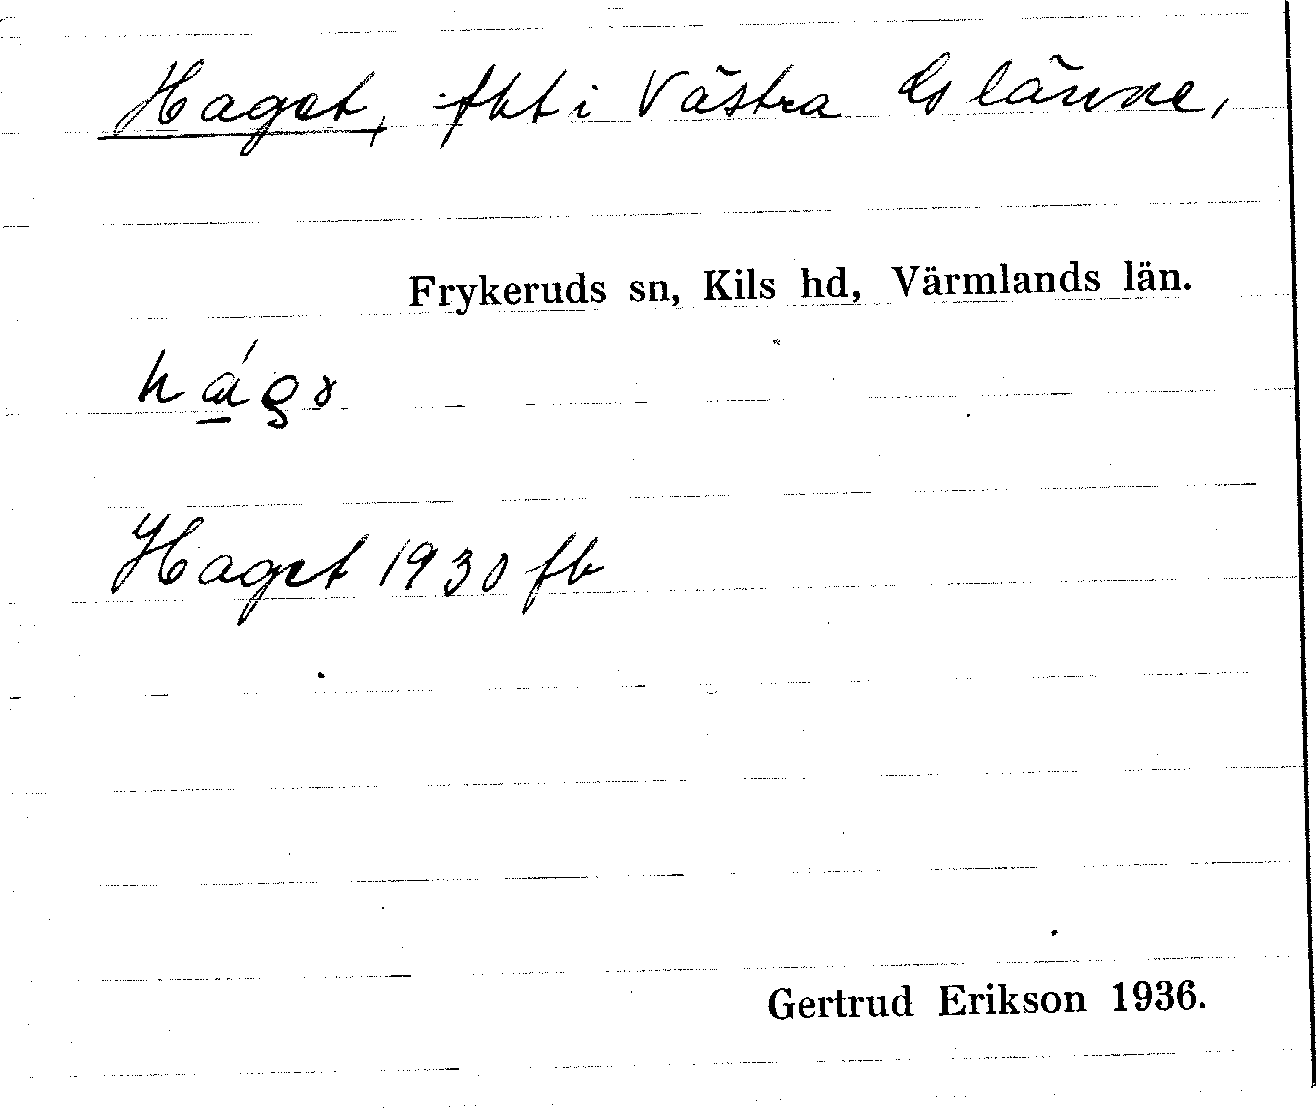 Haget, fht i Västra Eslänne,
Frykeruds sn, Kils hd, Värmlands län.
Haget 1930 fb
Gertrud Erikson 1936.